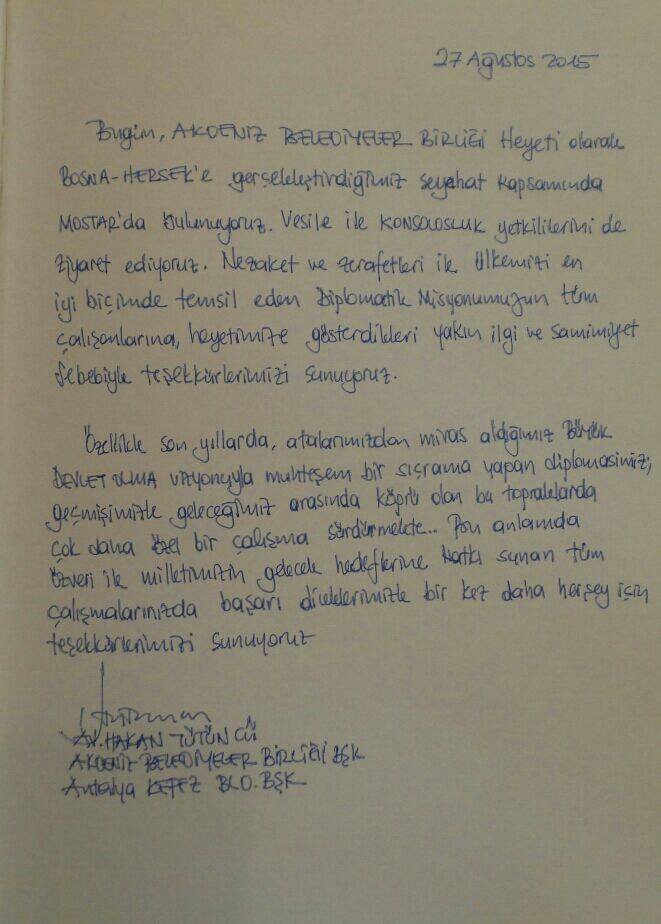 27 Ağustos 2015
Bugün, AKDENİZ BELEDİYELER BİRLİĞİ Heyeti olarak
BOSNA-HERSEK'e gerçekleştirdiğimiz seyahat kapsamında
MOSTAR'da bulunuyoruz. Vesile ile KONSOLOSLUK yetkililerini de
ziyaret ediyoruz. Nezaket ve zerafetleri ile Ülkemizi en
iyi biçimde temsil eden Diplomatik Misyonumuzun tüm
çalışanlarına, heyetimize gösterdikleri yakın ilgi ve samimiyet
sebebiyle teşekkürlerimizi sunuyoruz.
Özellikle son yıllarda, atalarımızdan miras aldığımız BÜYÜK
DEVLET OLMA vizyonuyla muhteşem bir sıçrama yapan diplomasimiz,
geçmişimizle geleceğimiz arasında köprü olan bu topraklarda
çok daha özel bir çalışma sürdürmekte... Bu anlamda
özveri ile milletimizin gelecek hedeflerine katkı sunan tüm
çalışmalarınızda başarı dileklerimizle bir kez daha herşey için
teşekkürlerimizi sunuyoruz
AV. HAKAN TÜTÜNCÜ
AKDENİZ BELEDİYELER BİRLİĞİ BŞK
Antalya KEPEZ BLD. BŞK